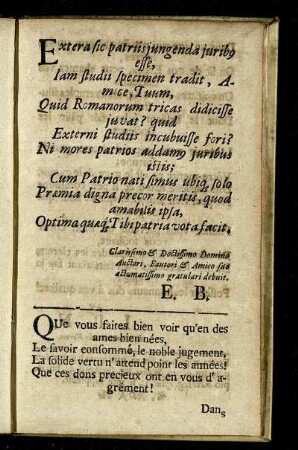 Extera sic patriis jungenda juribꝰ
esse,
Iam studii specimen tradit, A-
mice, Tuum,
Quid Romanorum tricas didicisse
juvat? quid
Externi studiis incubuisse fori?
Ni mores patrios addamꝰ juribus
istis;
Cum Patrio nati simus ubiq; solo
Præmia digna precor meritis, quod
amabilis ipsa,
Optima quæq; Tibi patria vota facit.
Clarissimo & Doctissimo Domino
Auctori, Fautori & Amico suo
actumatissimo gratulari debuit.
E. B.
QUe vous faires bien voir qu'en des
ames bien nées,
Le savoir consommé, le noble jugement,
La solide vertu n'attend point les années!
Que ces dons precieux ont en vous d'a-
grément!
Dans